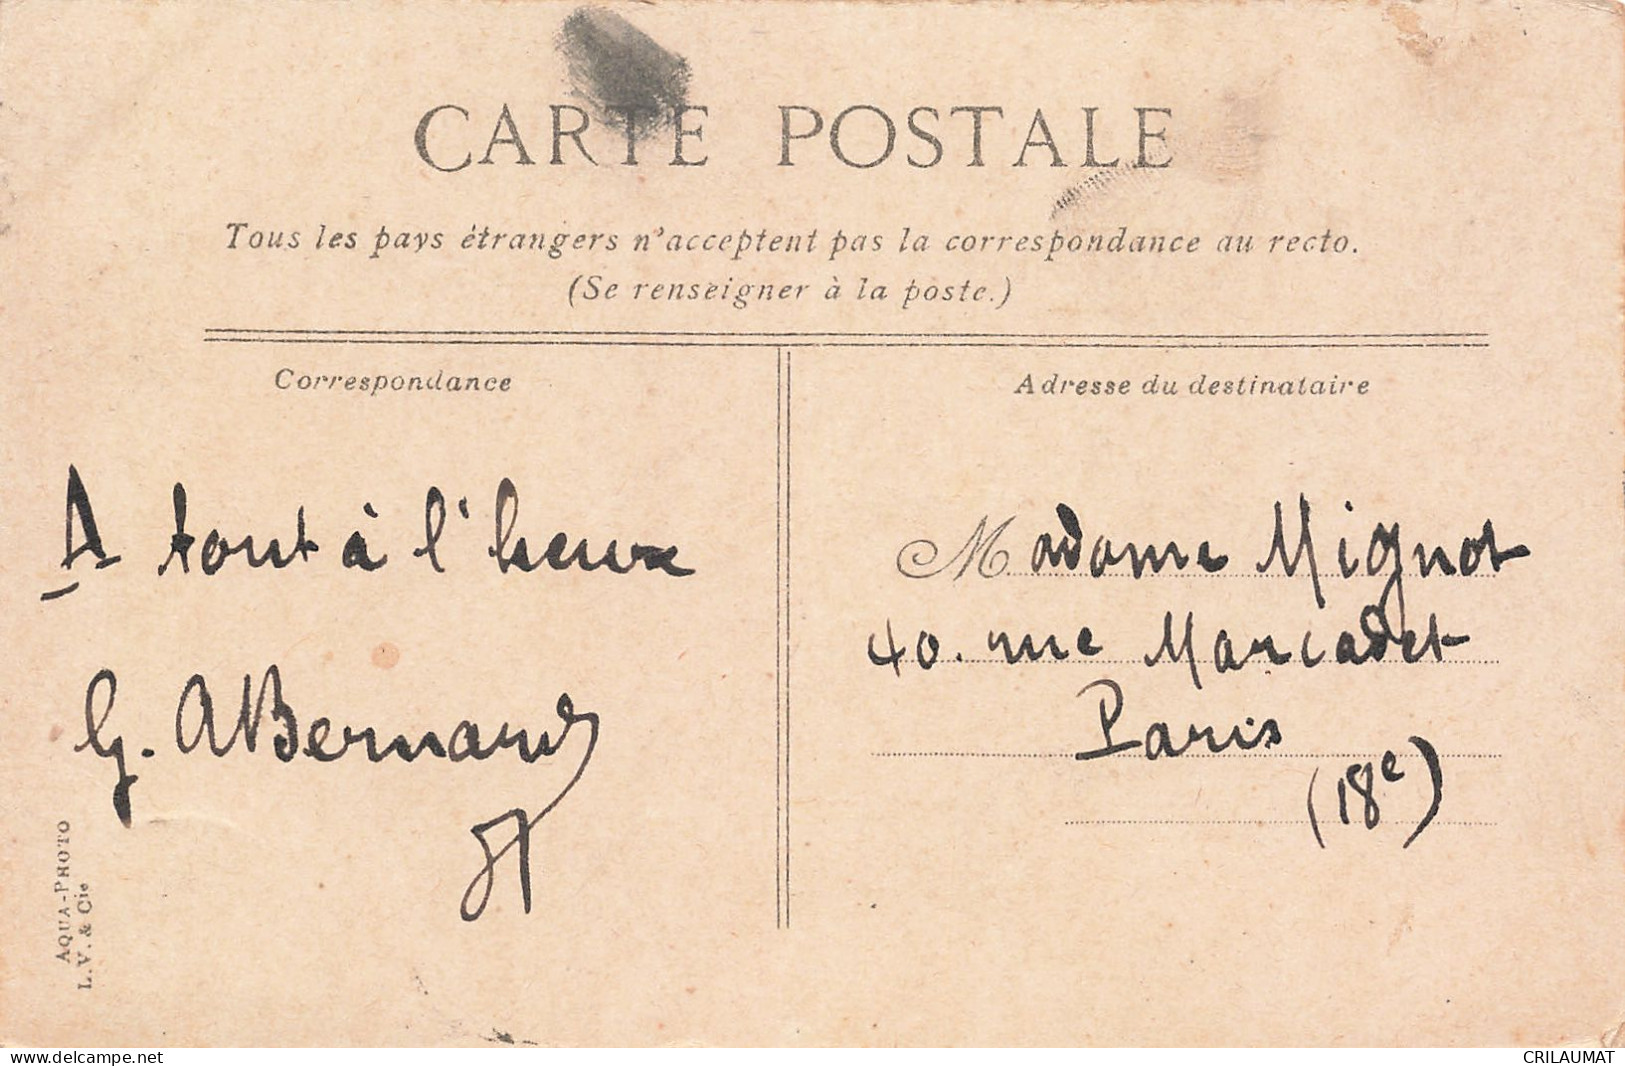 CARTE POSTALE
Tous les pays étrangers n'acceptent pas la correspondance au recto.
(Se renseigner à la poste.)
Correspondance
A tout à l'heure
G. ABernard
Adresse du destinataire
Madame Mignot
40. rue Marcadet
Paris
(18e)
AQUA-PHOTO
L.V. & Cie
www.delcampe.net
CRILAUMAT